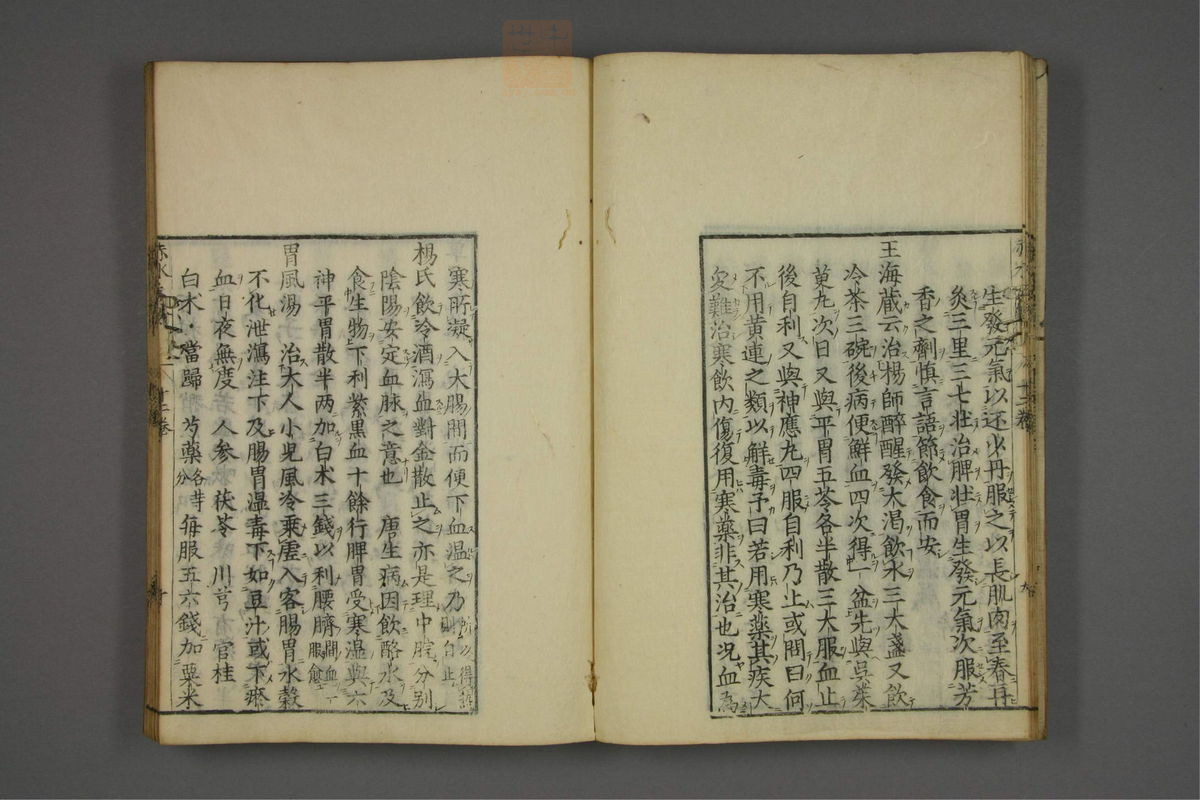 生發元氣以还少丹服之以長肌肉至春再
灸三里三七壯治脾壯胃生發元氣次服芳
香之劑慎言語節飲食而安
王海藏云治楊師醉醒發大渴飲水三大盞又飲
冷茶三碗後病便鮮血四次得一盆先與吳茱
萸丸次日又與平胃五苓各半散三大服血止
後自利又與神應丸四服自利乃止或問曰何
不用黃連之類以解毒予曰若用寒藥其疾大
變難治寒飲内傷復用寒藥非其治也况血為
寒所凝入大腸間而便下血温之乃
所以得訴
則自止
楊氏飲冷酒瀉血對金散止之亦是理中脘分别
陰陽安定血脉之意也 唐生病因飲酪水及
食生物下利紫黑血十餘行脾胃受寒温與六
神平胃散半两加白术三錢以利腰臍間血
服愈
胃風湯 治大人小児風冷乘虚入客腸胃水穀
不化泄瀉注下及腸胃温毒下如豆汁或下瘀
血日夜無度 人参 茯苓 川芎 官桂
白术 當歸 芍藥各等分 每服五六錢加粟米
赤水
十二卷
赤水
十二卷